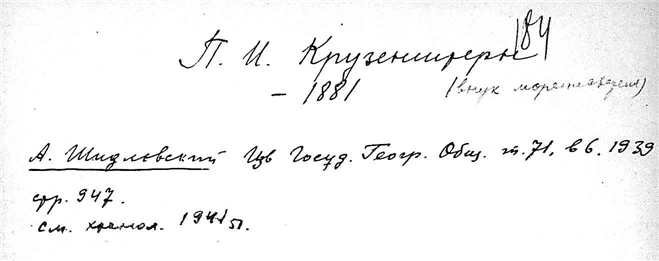 184
П. И. Крузенштерн
– 1881 (внук мореплавателя)
А. Шидловский Изв Госуд. Геогр. Общ. т. 71, в 6. 1939
стр. 947.
см. хронол. 1941